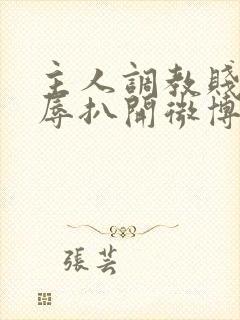 主人調教賤
辱扒開微博
張芸